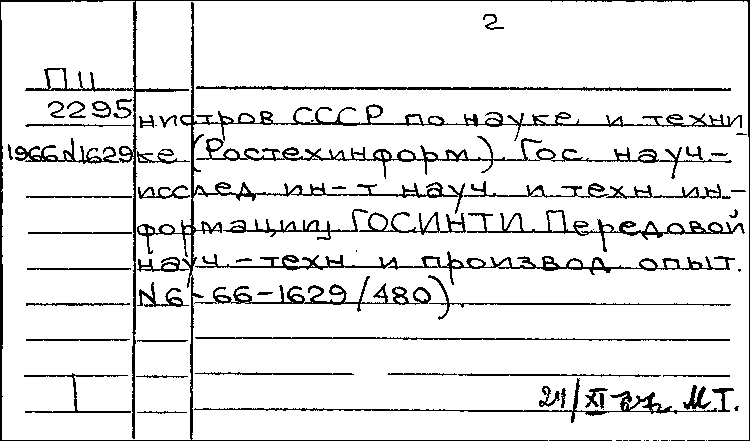 2
П 11
2295
нистров СССР по науке и техни
1966 N1629 ке (Ростехинформ). Гос. науч-
исслед. ин-т науч. и техн. ин-
формации, ГОСИНТИ. Передовой
науч.-техн. и производ. опыт.
N6-66-1629/480).
24/XI М.Т.